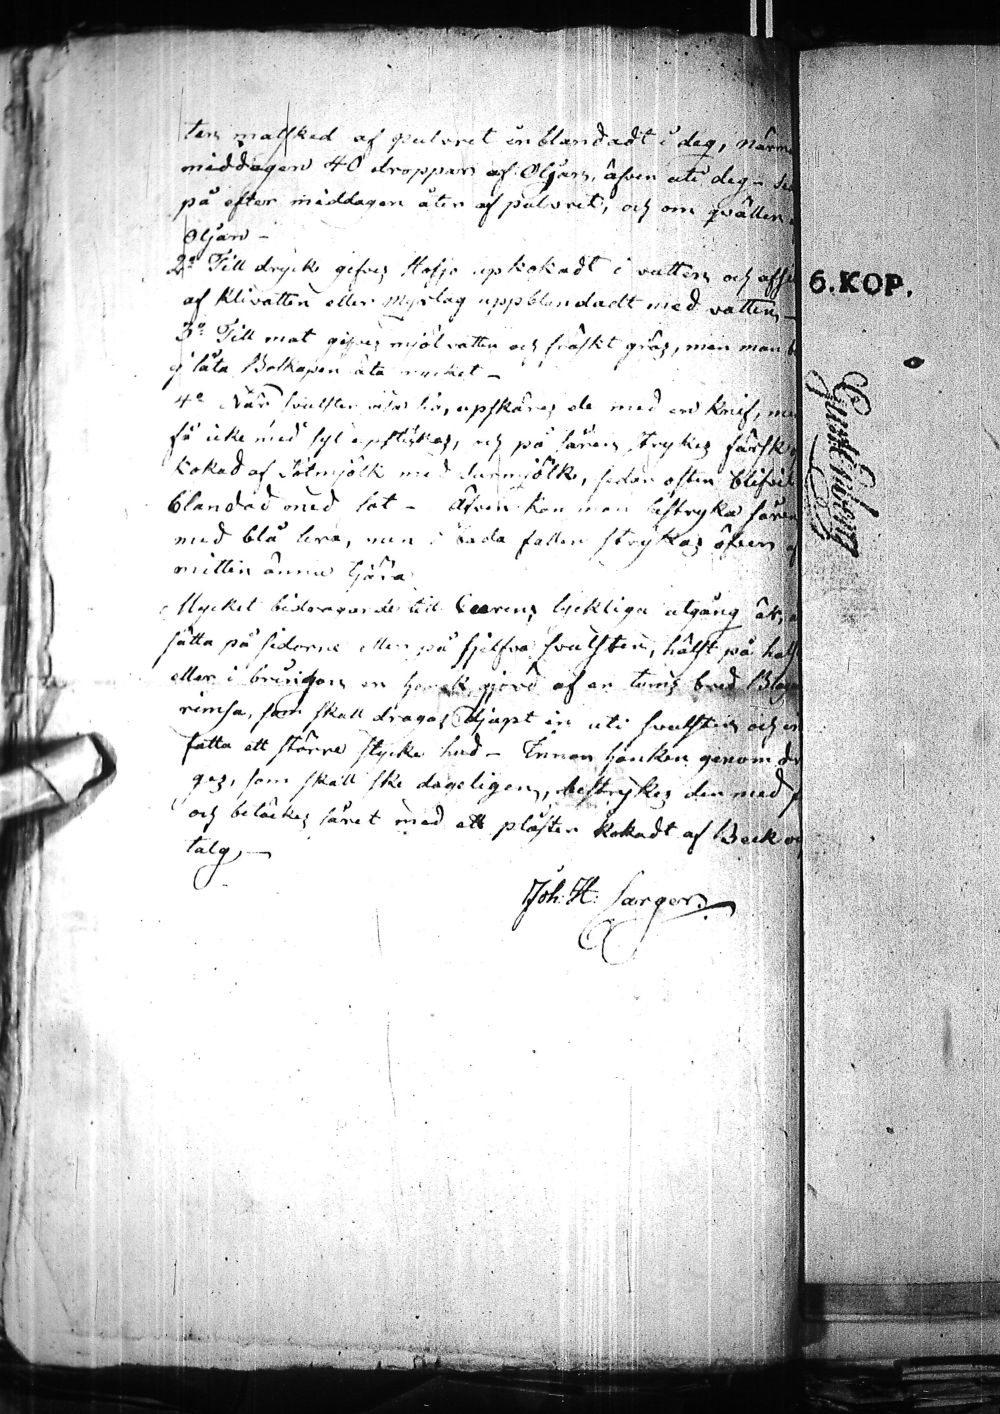 ten matsked af pulvret inblandadt i deg, närm
middagen 40 droppar af Oljan, äfven uti deg -
på efter middagen åter af pulvret, och om qvällen
Oljan -
2o Till dryck gifves Hafje upkokadt i vatten och
af Klivatten eller Myrslag uppblandadt med vatten, -
3o Till mat gifves mjölvatten och friskt gräs, men man
ej låta Boskapen äta mycket -
4o När svulster visa sig, upskäres de med en knif, men
få icke med syl upstickas, och på såren strykes färsk
kokad af Sötmjölk med Surmjölk, sedan osten blifvit
blandad med sot - Äfven kan man bestryka såren
med blå lera, men i båda fallen strykes äfven
mitten ömnie tjära
Mycket bidragande till Curens lyckliga utgång är,
sätta på sidorne eller på sjelfva svulsten, hälst på hals
eller i bringan, en hank gjord af en tums bred
rimsa, som skall dragas djupt in uti svulsten och
fatta ett större stycke hud - Innan hanken genom dr
ges, som skall ske dageligen, bestrykes den med
och betäckes såret med ett plåster kokadt af Beck och
talg, -
Joh: H:
6. KOP.